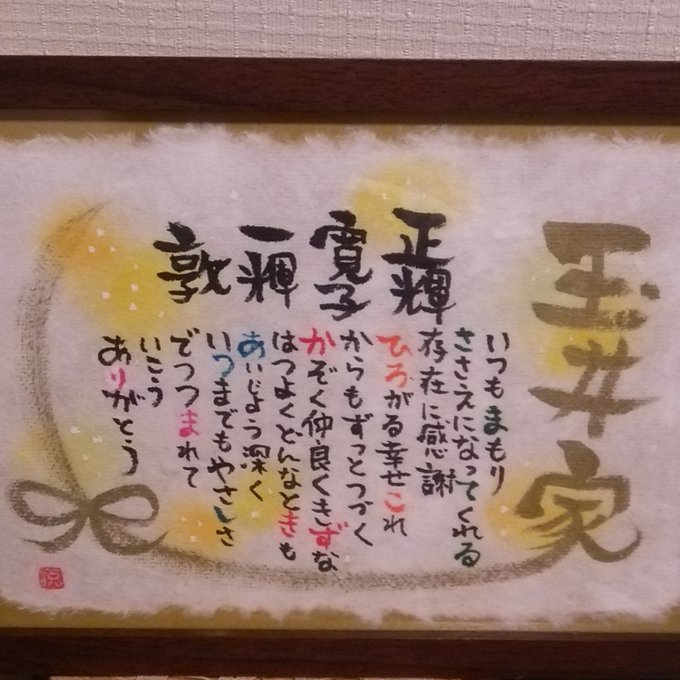 玉井家
正輝
寛子
一輝
敦
いつもまもり
ささえになってくれる
存在に感謝
ひろがる幸せこれ
からもずっとつづく
かぞく仲良くきずな
はつよくどんなときも
あいじょう深く
いつまでもやさしさ
でつつまれて
いこう
ありがとう